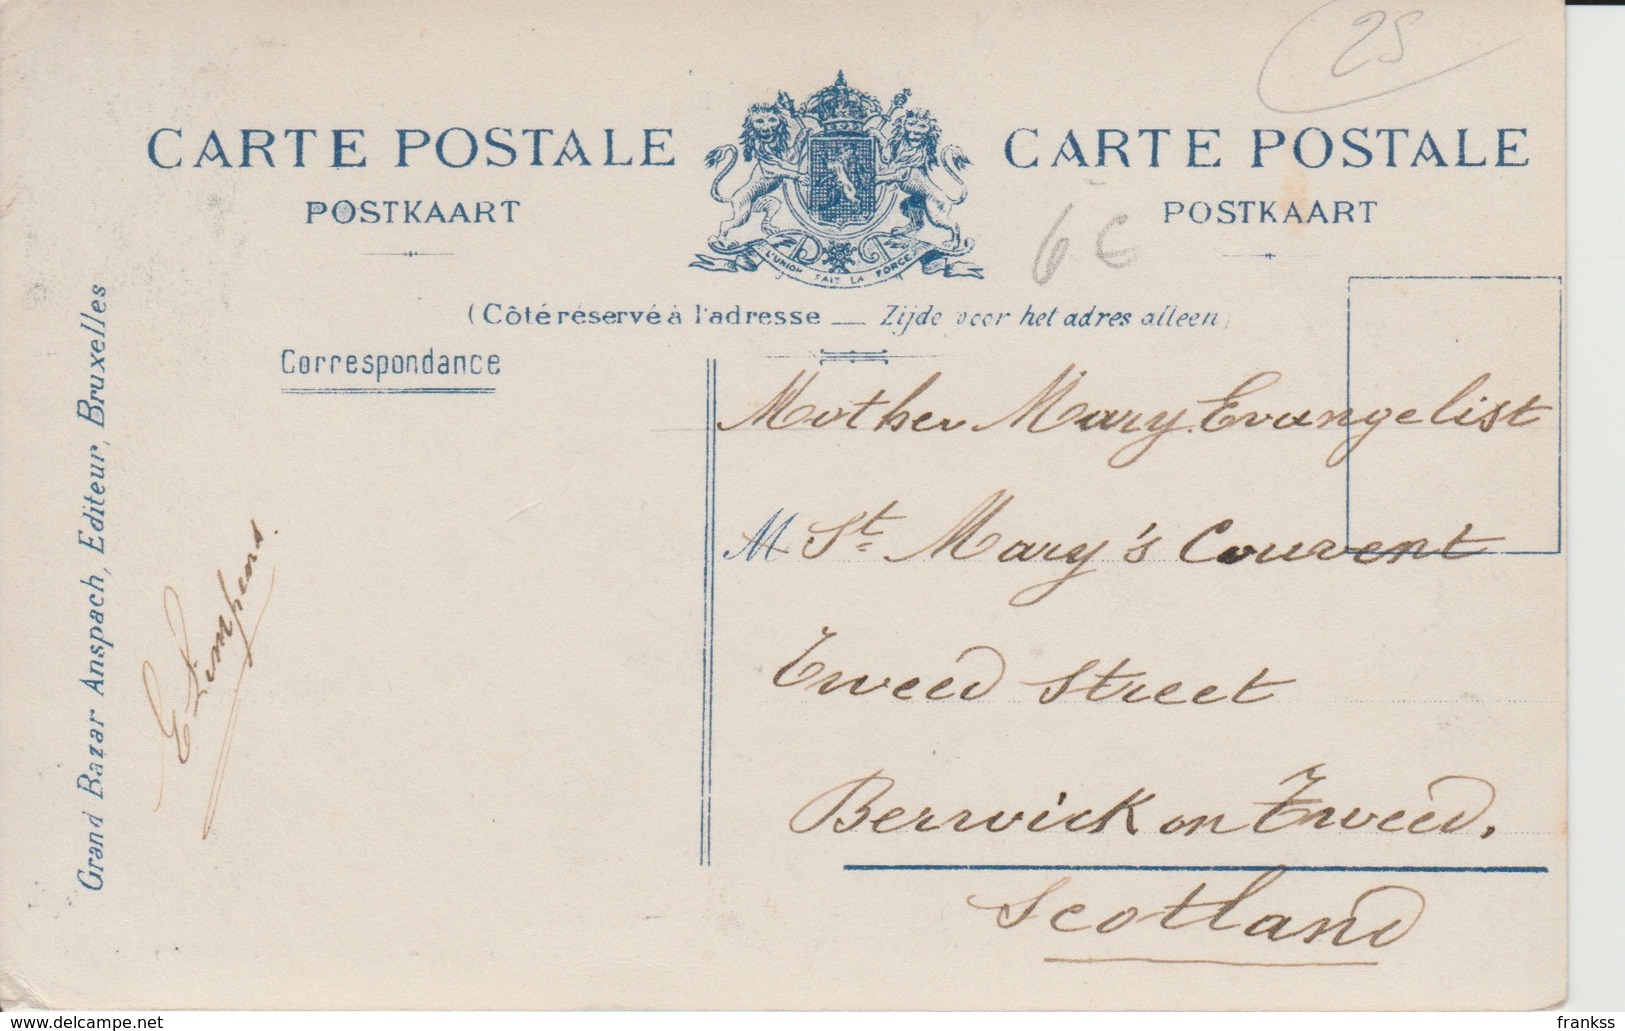 25
CARTE POSTALE
POSTKAART
CARTE POSTALE
POSTKAART
L'UNION FAIT LA FORCE
6 €
(Côté réservé à l'adresse — Zijde voor het adres alleen)
Correspondance
Grand Bazar Anspach, Editeur, Bruxelles
E Limpens.
Mother Mary Evangelist
M St Mary's Convent
Tweed Street
Berwick on Tweed.
Scotland
delcampe.net
frankss